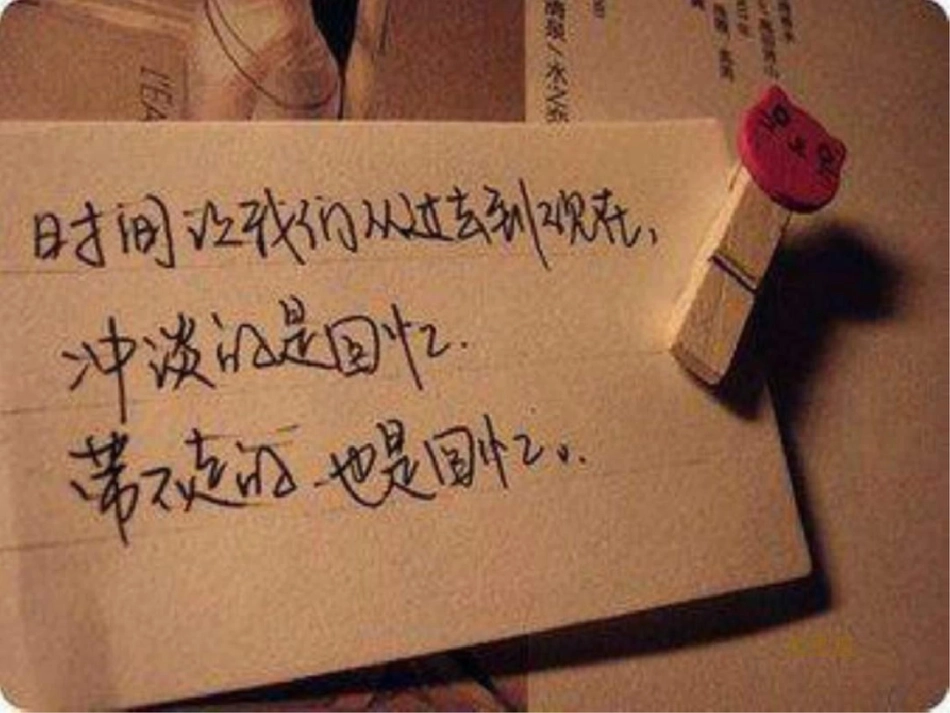 时间让我们从过去到现在,
冲淡的是回忆.
带不走的.也是回忆..
L'EA